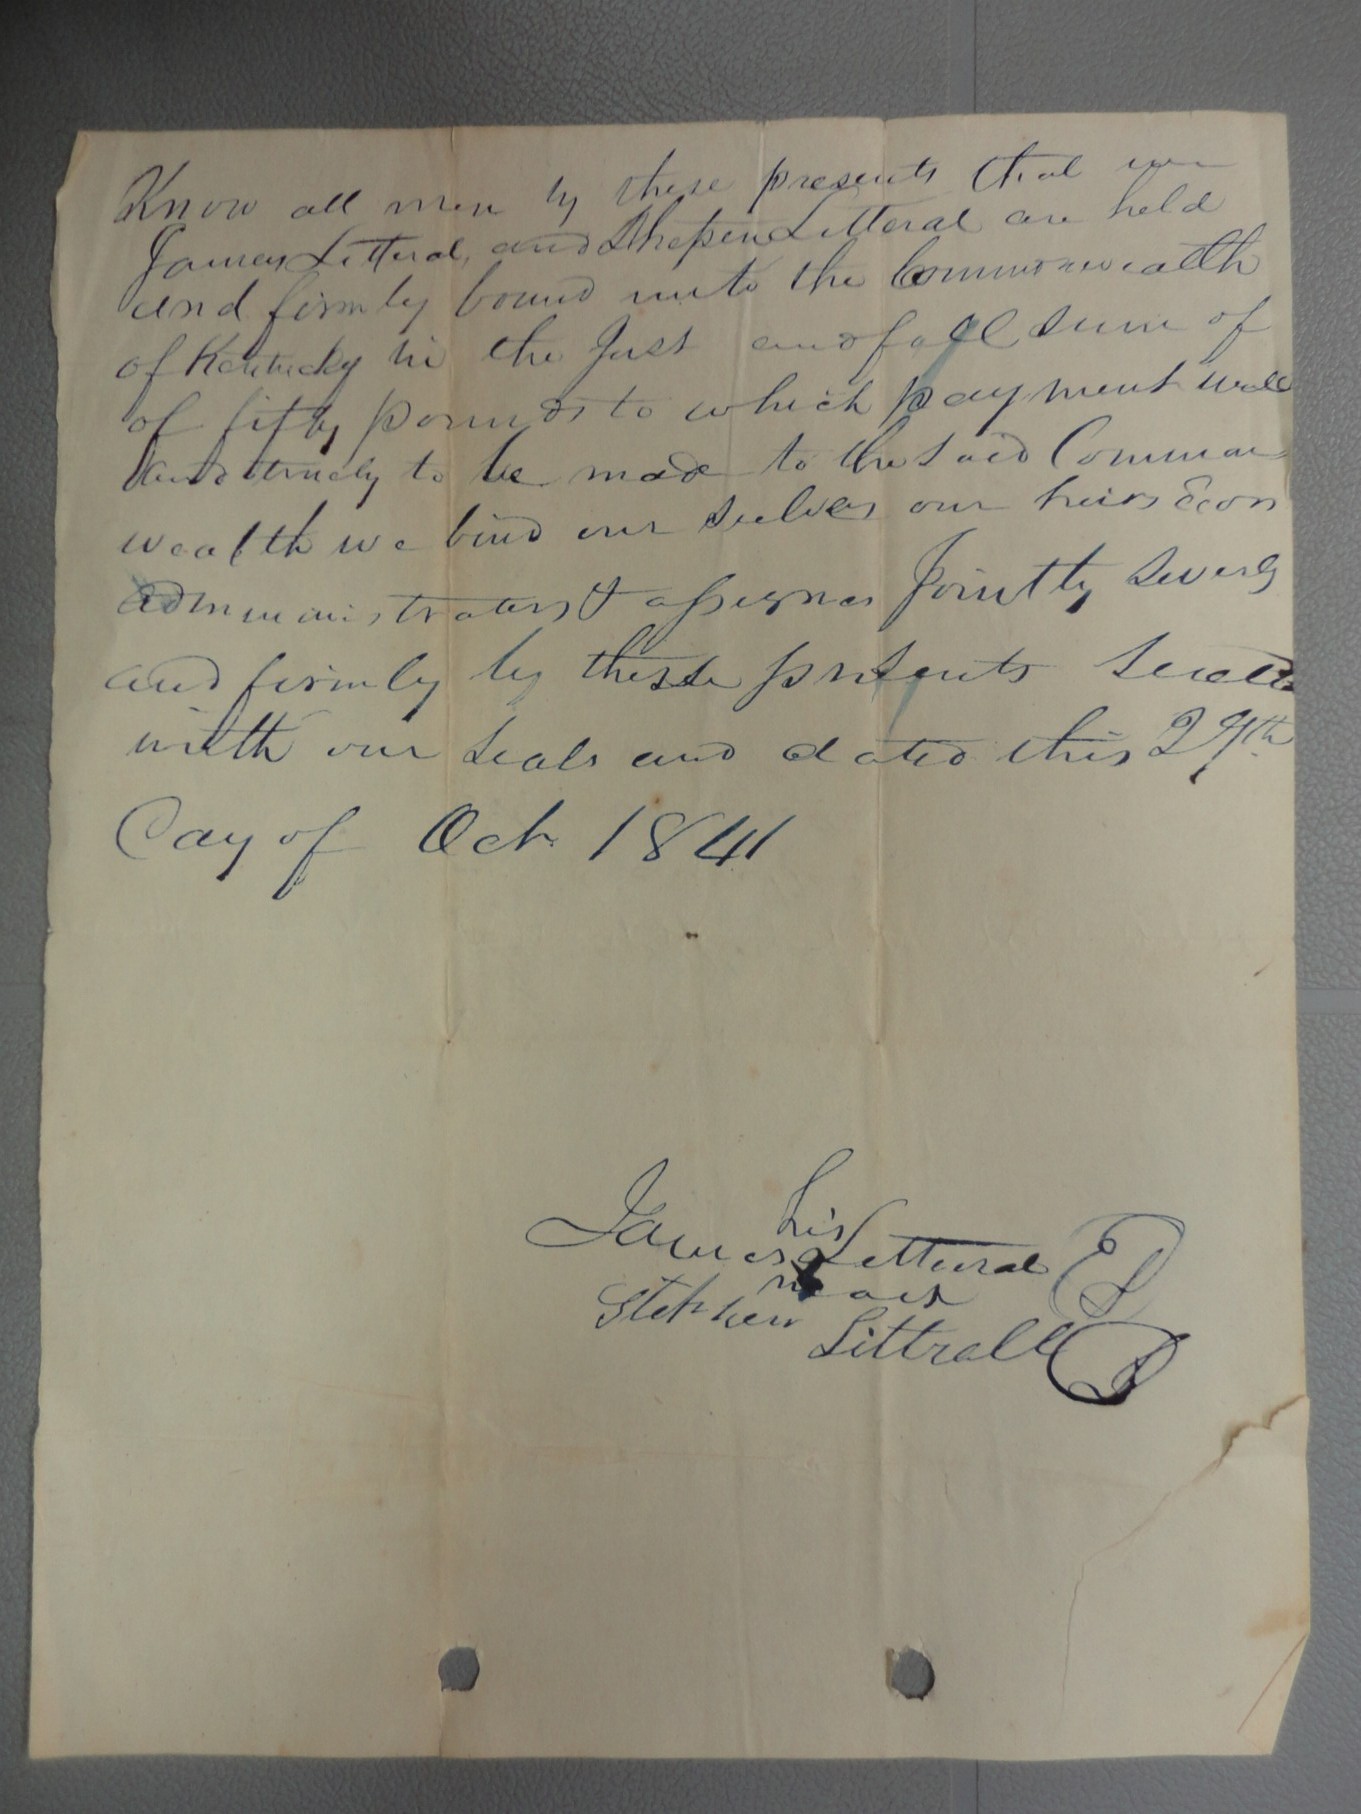 Know all men by these presents that we
James Litteral, and Sthepen Litteral are held
and firmly bound unto the Commonwealth
of Kentucky in the Just and full sum of
of fifty pounds to which payment well
and truely to be made to the said Common
wealth we bind our selves our heirs Ecors
administrators & assignes Jointly severly
and firmly by these presents Seald
with our seals and dated this 27th
Day of Oct 1841
his
James Litteral
mark
Stephen Littrall